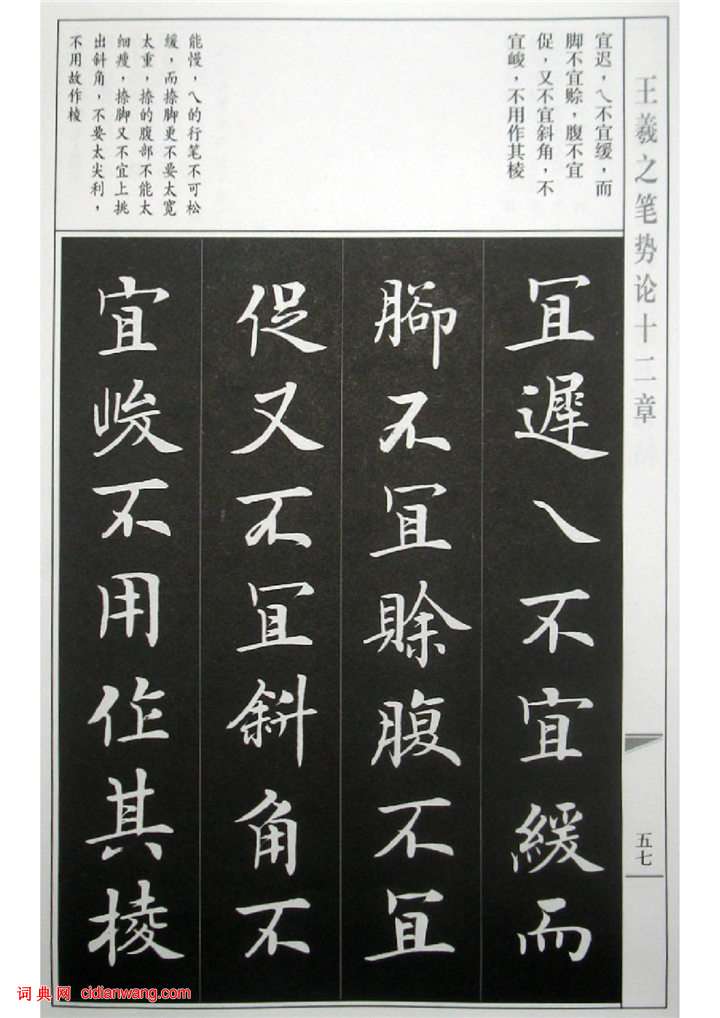 王羲之笔势论十二章
宜迟，乀不宜缓，而
脚不宜赊，腹不宜
促，又不宜斜角，不
宜峻，不用作其棱
能慢，乀的行笔不可松
缓，而捺脚更不要太宽
太重，捺的腹部不能太
细瘦，捺脚又不宜上挑
出斜角，不要太尖利，
不用故作棱
冝遲乀不宜緩而
腳不冝賒腹不冝
促又不冝斜角不
宜峻不用作其棱
五七
词典网 cidianwang.com